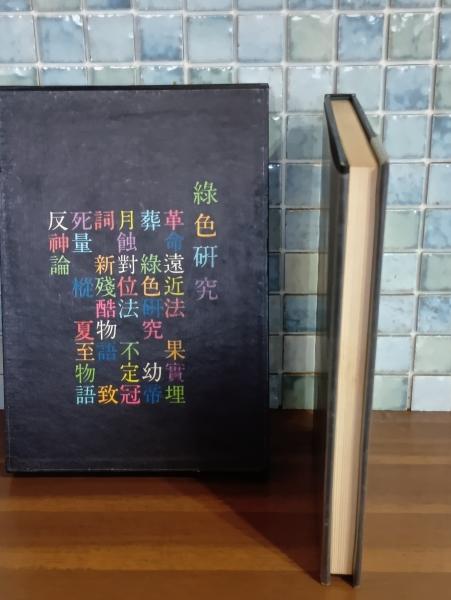 綠色研究
革命遠近法 果實埋
葬 綠色研究 幼帝
月蝕對位法 不定冠
詞 新殘酷物語 致
死量 樅 夏至物語
反神論